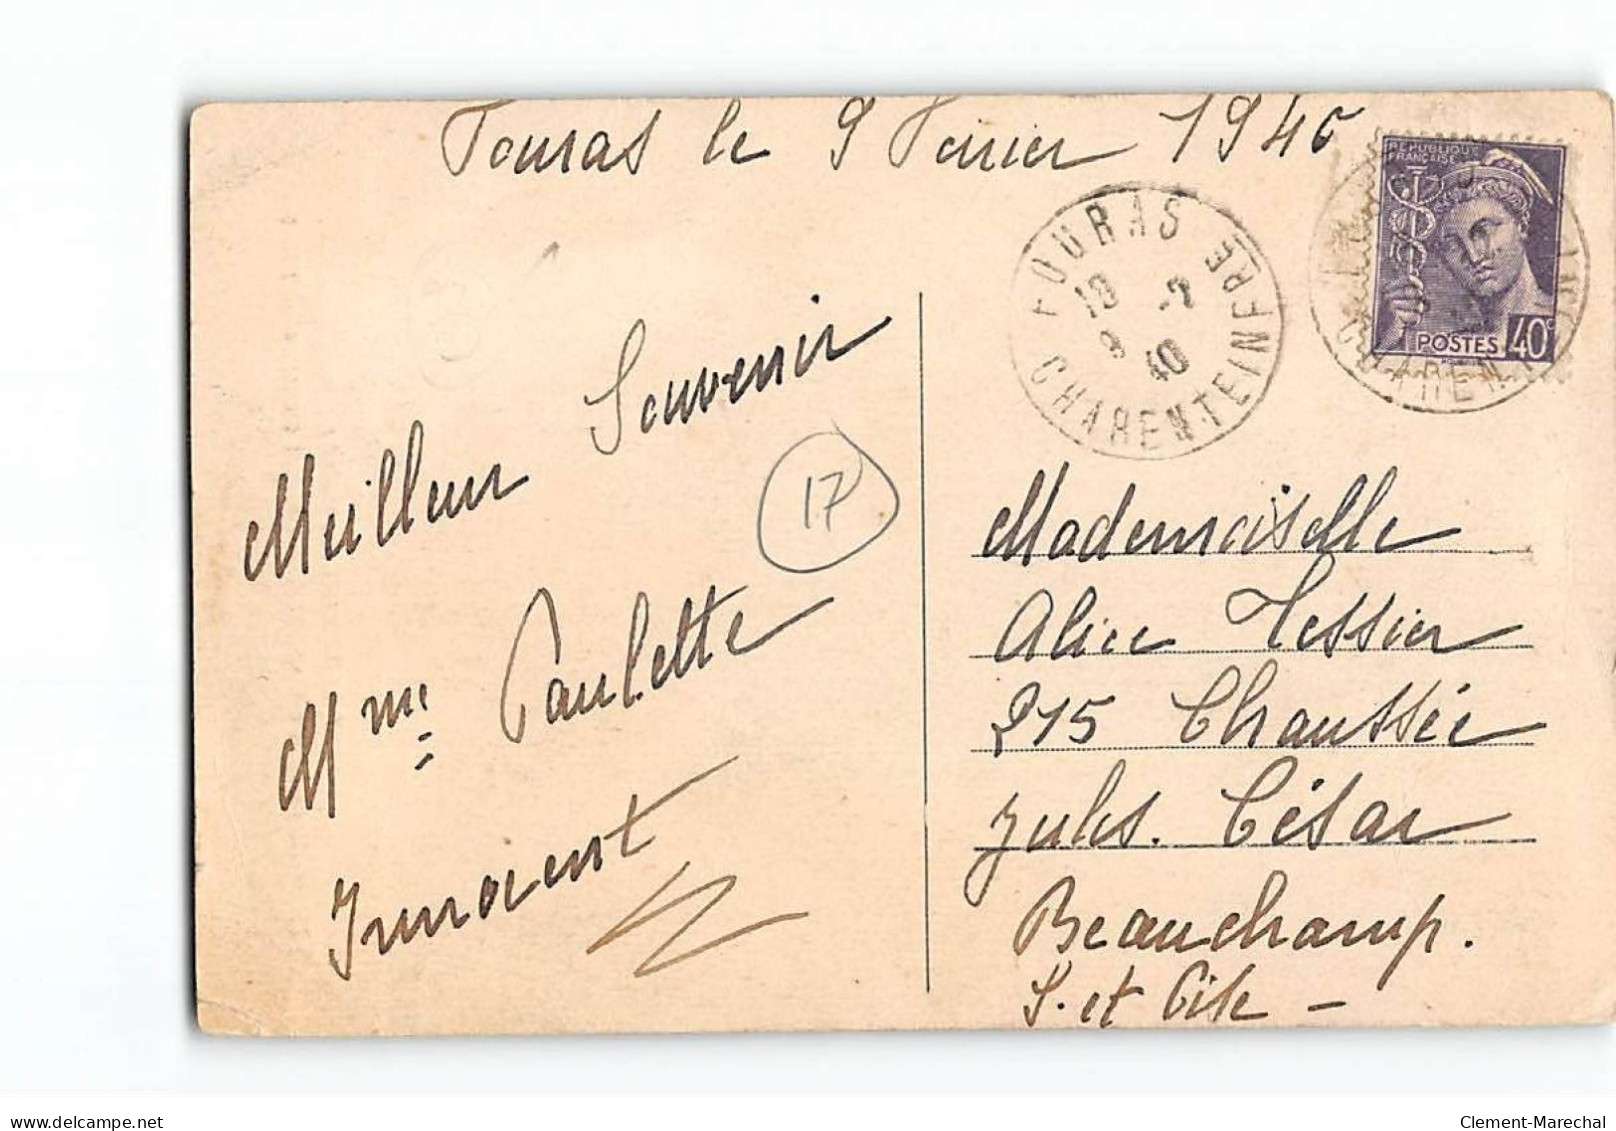 Fouras le 9 Février 1940
Meilleur Souvenir
Mme Paulette
Innocent
17
FOURAS
10 -2
40
CHARENTE INFRE
REPUBLIQUE
FRANCAISE
POSTES 40c
CHARENT
Mademoiselle
Alice Tessier
215 Chaussée
Jules. César
Beauchamp.
S. et Oise -
delcampe.net
Clement-Marechal